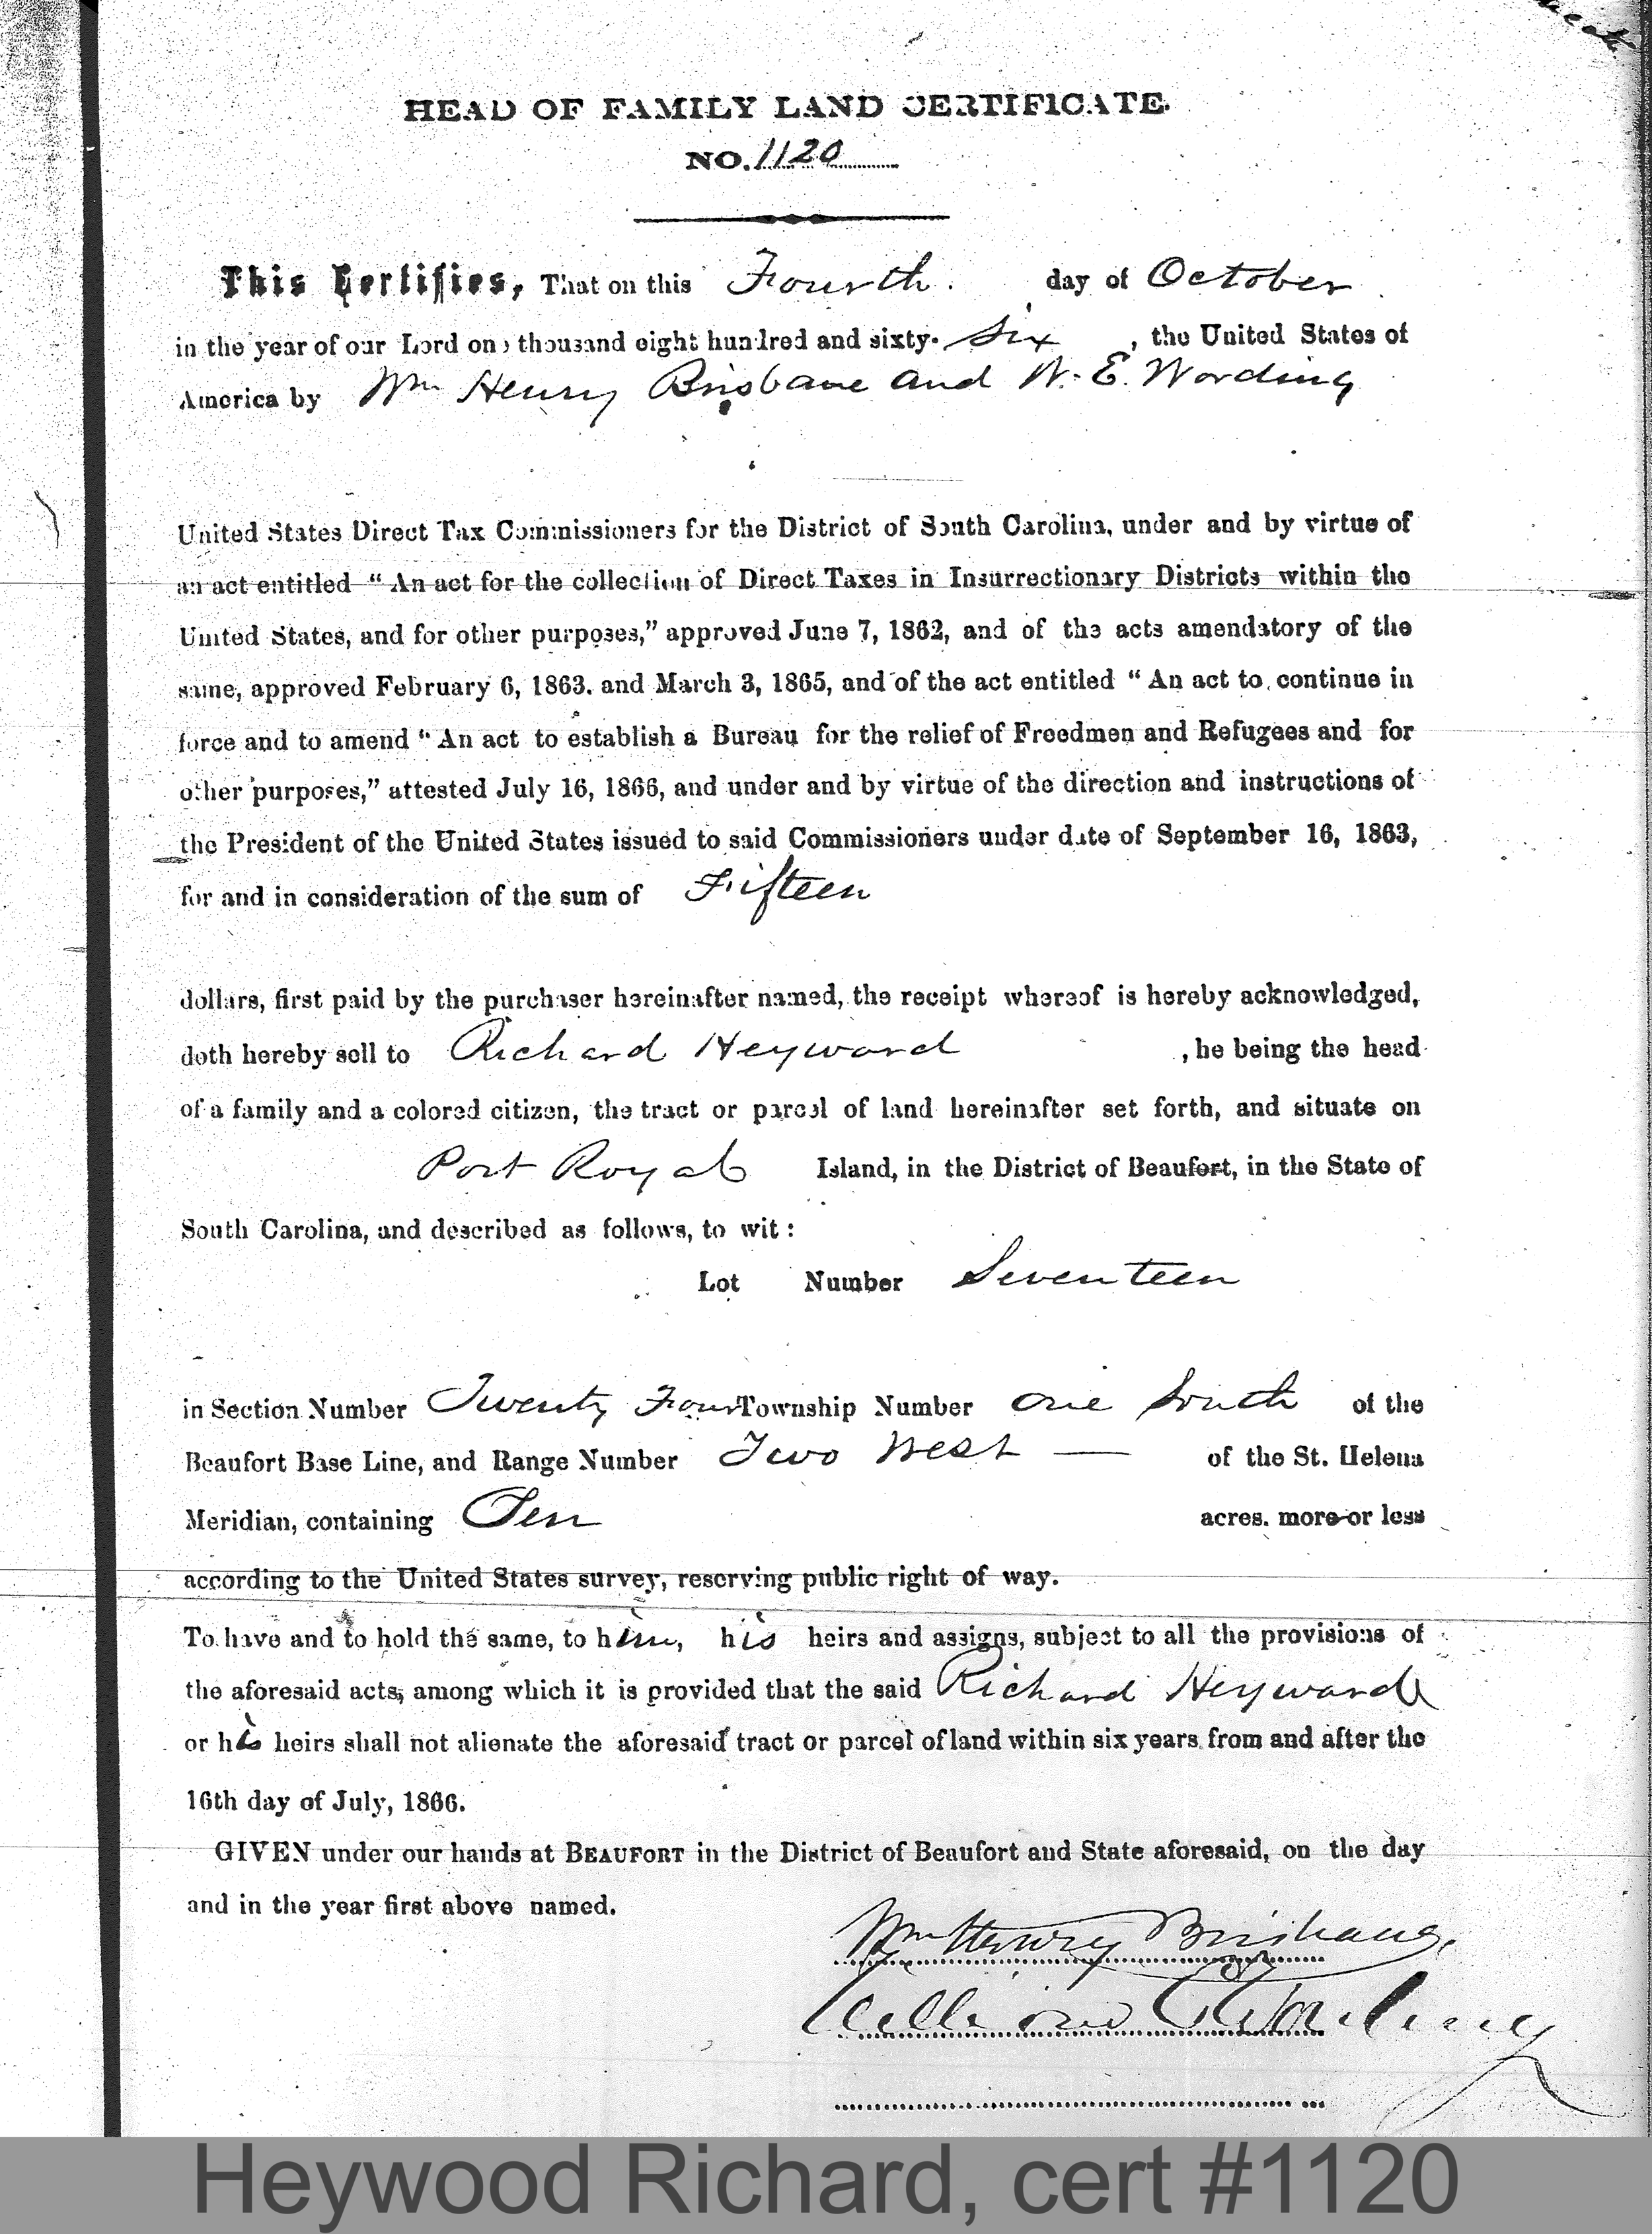 HEAD OF FAMILY LAND CERTIFICATE.
NO. 1120
This Certifies, That on this Fourth day of October
in the year of our Lord one thousand eight hundred and sixty- Six , the United States of
America by Wm Henry Brisbane and W. E. Wording
United States Direct Tax Commissioners for the District of South Carolina, under and by virtue of
an act entitled “ An act for the collection of Direct Taxes in Insurrectionary Districts within the
United States, and for other purposes,” approved June 7, 1862, and of the acts amendatory of the
same, approved February 6, 1863. and March 3, 1865, and of the act entitled “ An act to continue in
force and to amend “ An act to establish a Bureau for the relief of Freedmen and Refugees and for
other purposes,” attested July 16, 1866, and under and by virtue of the direction and instructions of
the President of the United States issued to said Commissioners under date of September 16, 1863,
for and in consideration of the sum of Fifteen
dollars, first paid by the purchaser hereinafter named, the receipt whereof is hereby acknowledged,
doth hereby sell to Richard Heyward , he being the head
of a family and a colored citizen, the tract or parcel of land hereinafter set forth, and situate on
Port Royal Island, in the District of Beaufort, in the State of
South Carolina, and described as follows, to wit :
Lot Number Seventeen
in Section Number Twenty Four Township Number One South of the
Beaufort Base Line, and Range Number Two West — of the St. Helena
Meridian, containing Ten acres. more or less
according to the United States survey, reserving public right of way.
To have and to hold the same, to him, his heirs and assigns, subject to all the provisions of
the aforesaid acts, among which it is provided that the said Richard Heyward
or his heirs shall not alienate the aforesaid tract or parcel of land within six years from and after the
16th day of July, 1866.
GIVEN under our hands at BEAUFORT in the District of Beaufort and State aforesaid, on the day
and in the year first above named.
Wm Henry Brisbane,
William E. Wording
Heywood Richard, cert #1120